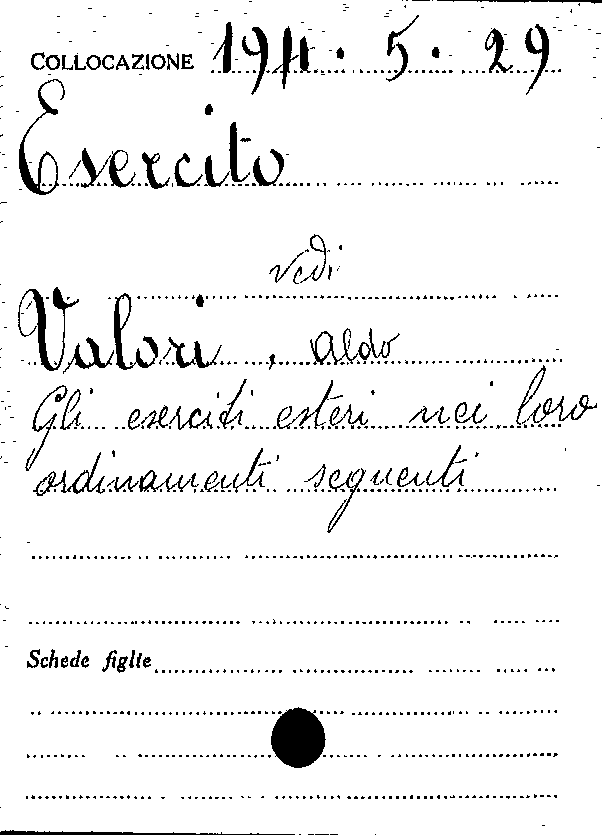 COLLOCAZIONE 194. 5. 29
Esercito
vedi
Valori, Aldo
Gli eserciti esteri nei loro
ordinamenti seguenti
Schede figlie